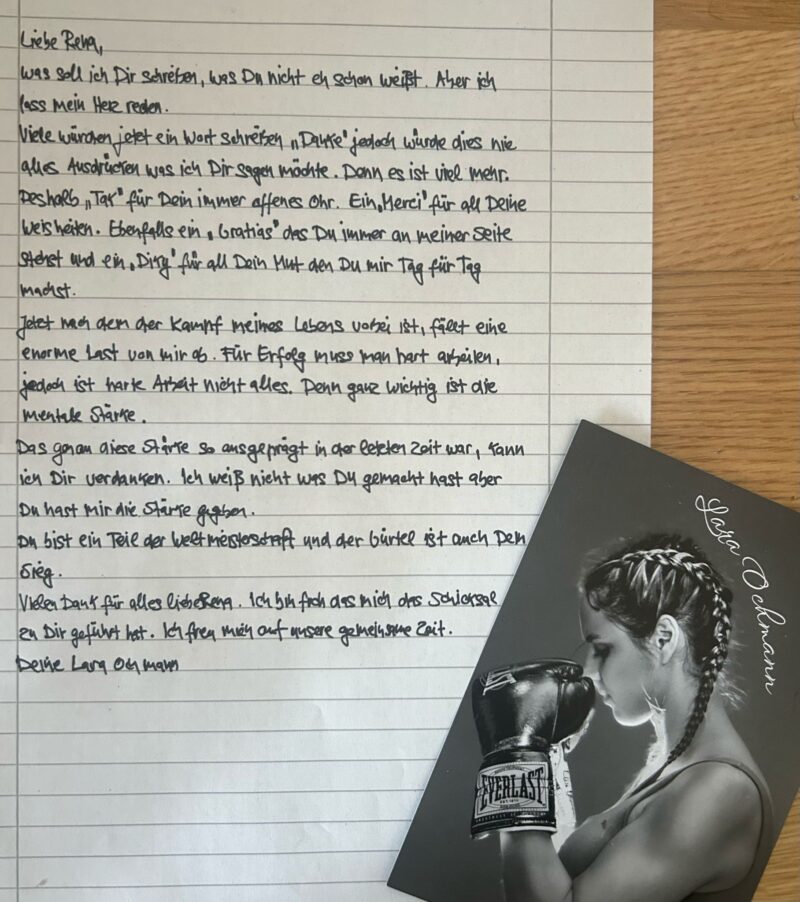 Liebe Rena,
Was soll ich Dir schreiben, was Du nicht eh schon weißt. Aber ich
lass mein Herz reden.
Viele würden jetzt ein Wort schreiben „Danke" jedoch würde dies nie
alles Ausdrücken was ich Dir sagen möchte. Denn es ist viel mehr.
Deshalb „Tak" für Dein immer offenes Ohr. Ein „Merci" für all Deine
Weisheiten. Ebenfalls ein „Gratias" das Du immer an meiner Seite
stehst und ein „Diky" für all Dein Mut den Du mir Tag für Tag
machst.
Jetzt nach dem der Kampf meines Lebens vorbei ist, fällt eine
enorme Last von mir ab. Für Erfolg muss man hart arbeiten,
jedoch ist harte Arbeit nicht alles. Denn ganz wichtig ist die
mentale Stärke.
Das genau diese Stärke so ausgeprägt in der letzten Zeit war, kann
ich Dir verdanken. Ich weiß nicht was Du gemacht hast aber
Du hast mir die Stärke gegeben.
Du bist ein Teil der Weltmeisterschaft und der Gürtel ist auch Dein
Sieg.
Vielen Dank für alles liebe Rena. Ich bin froh das mich das Schicksal
zu Dir geführt hat. Ich freu mich auf unsere gemeinsame Zeit.
Deine Lara Ochmann
Lara Ochmann
EVERLAST